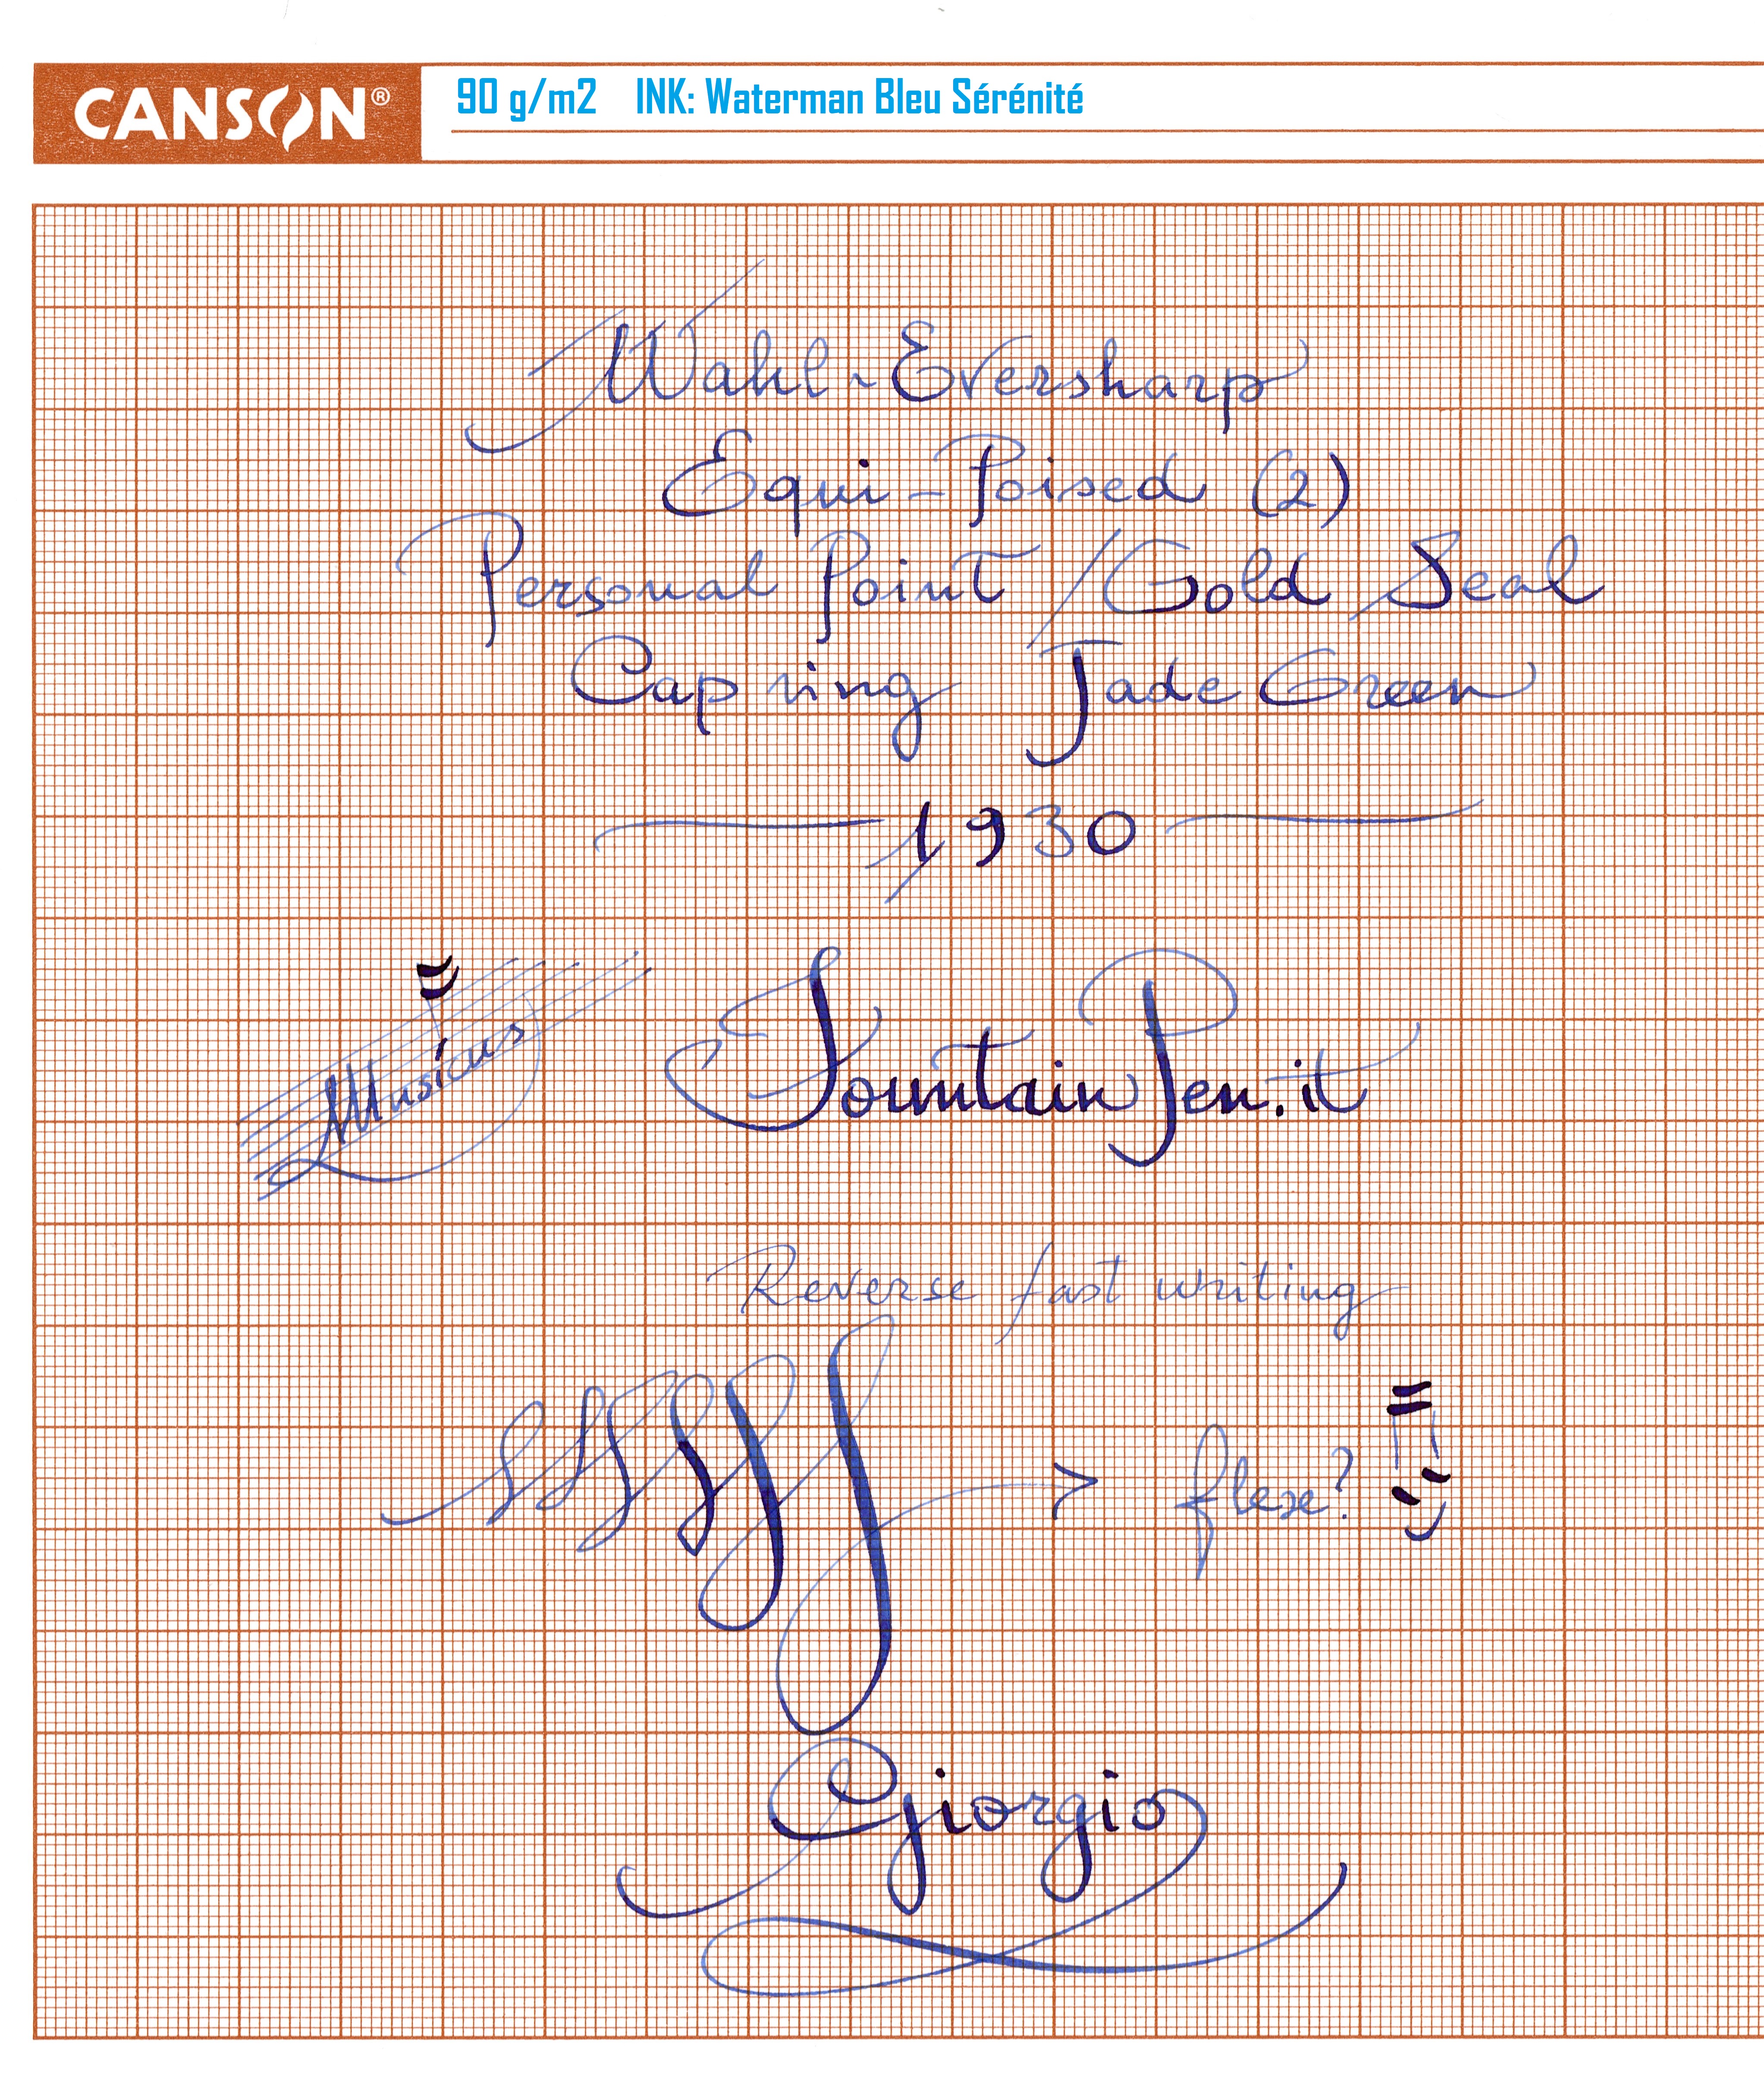 CANSON®
90 g/m2 INK: Waterman Bleu Sérénité
Wahl-Eversharp
Equi-Poised (2)
Personal Point/Gold Seal
Cap ring Jade Green
1930
Musicus
FountainPen.it
Reverse fast writing
flexe?
Giorgio